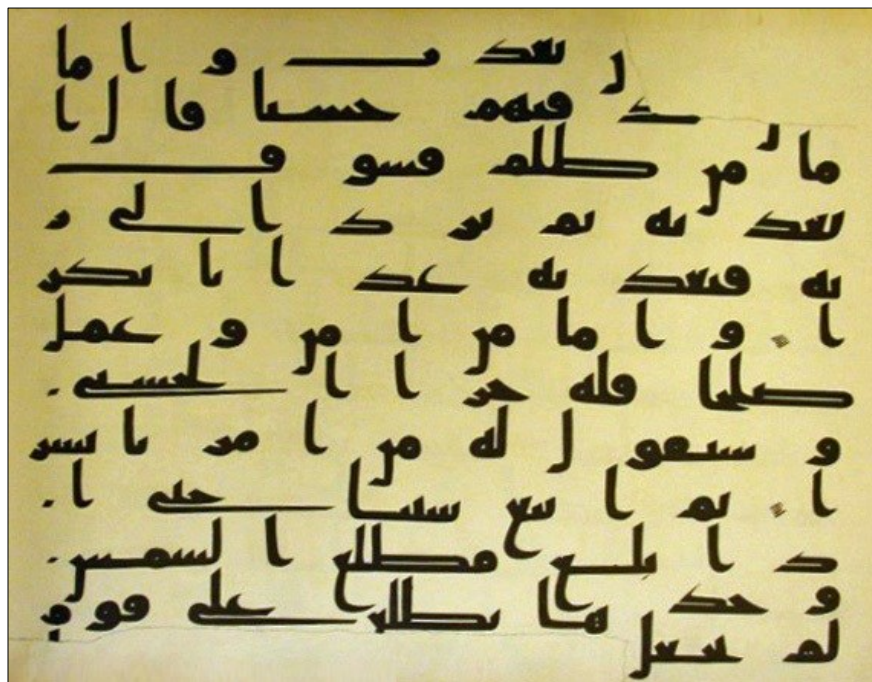 ن تعذب واما
ن تتخذ فيهم حسنا قال ا
ما من ظلم فسوف
نعذبه ثم يرد الى ر
به فيعذبه عذابا نكر
ا واما من امن وعمل
صلحا فله جزا الحسنى
وسنقول له من امرنا يسر
ا ثم اتبع سببا حتى ا
ذا بلغ مطلع الشمس
وجدها تطلع على قوم
لم نجعل